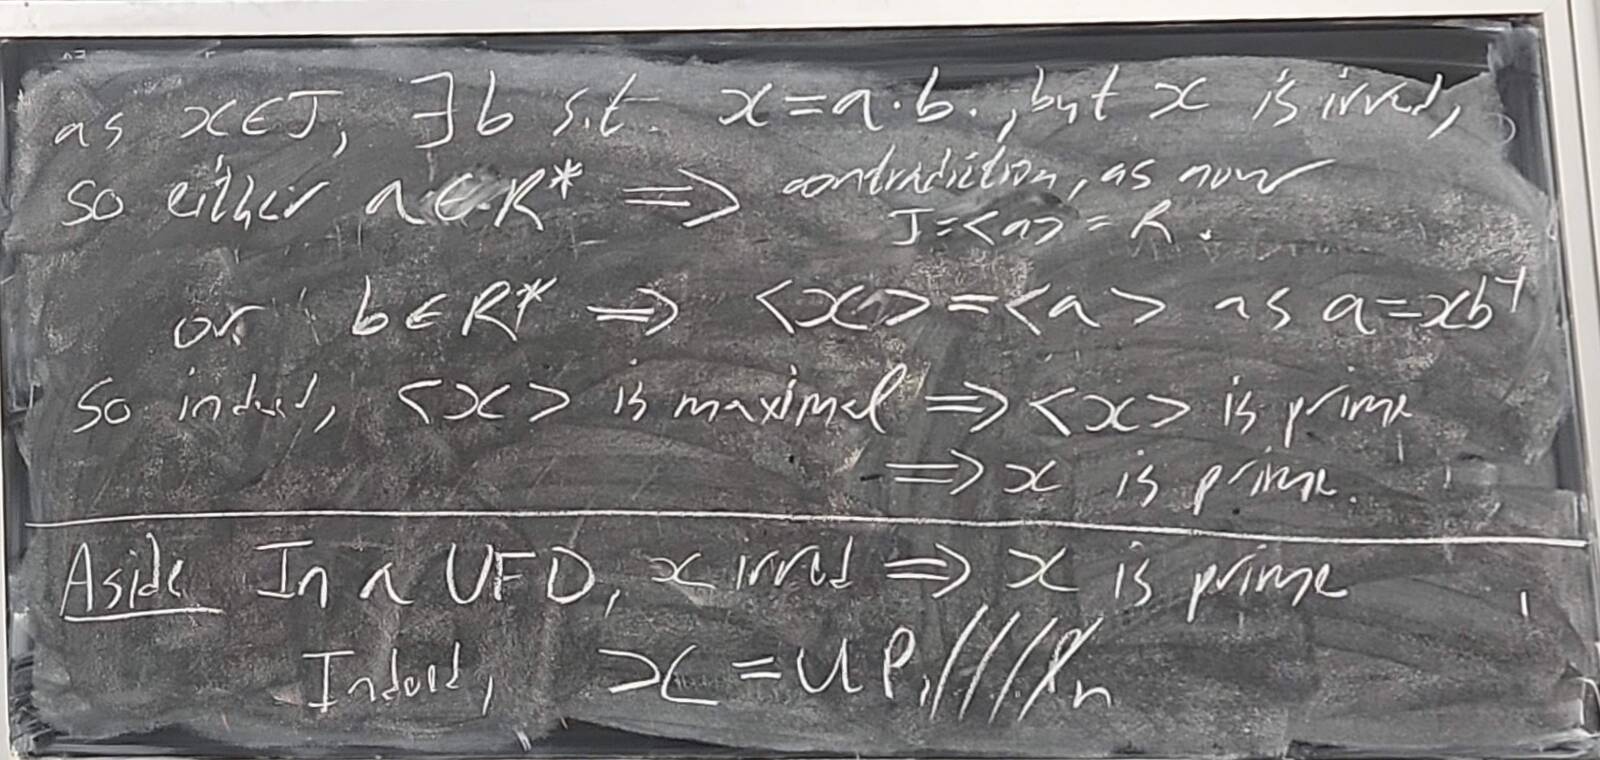 as x∈J, ∃b s.t. x=a·b., but x is irred,
so either a∈R* ⟹ contradiction, as now
J=<a>=R.
or b∈R* ⟹ <x>=<a> as a=xb⁻¹
So indeed, <x> is maximal ⟹ <x> is prime
⟹ x is prime.
Aside In a UFD, x irred ⟹ x is prime
Indeed, x = u p₁ //// pₙ